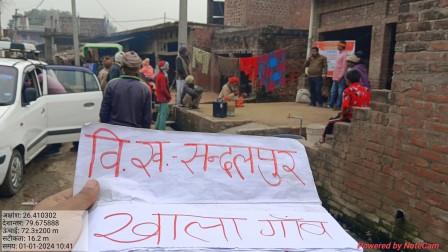 वि.ख.- सन्दलपुर
खाला गाँव
अक्षांश: 26.410302
देशान्तर: 79.675888
ऊंचाई: 72.3±220 m
सटीकता: 16.2 m
समय: 01-01-2024 10:41
Powered by NoteCam